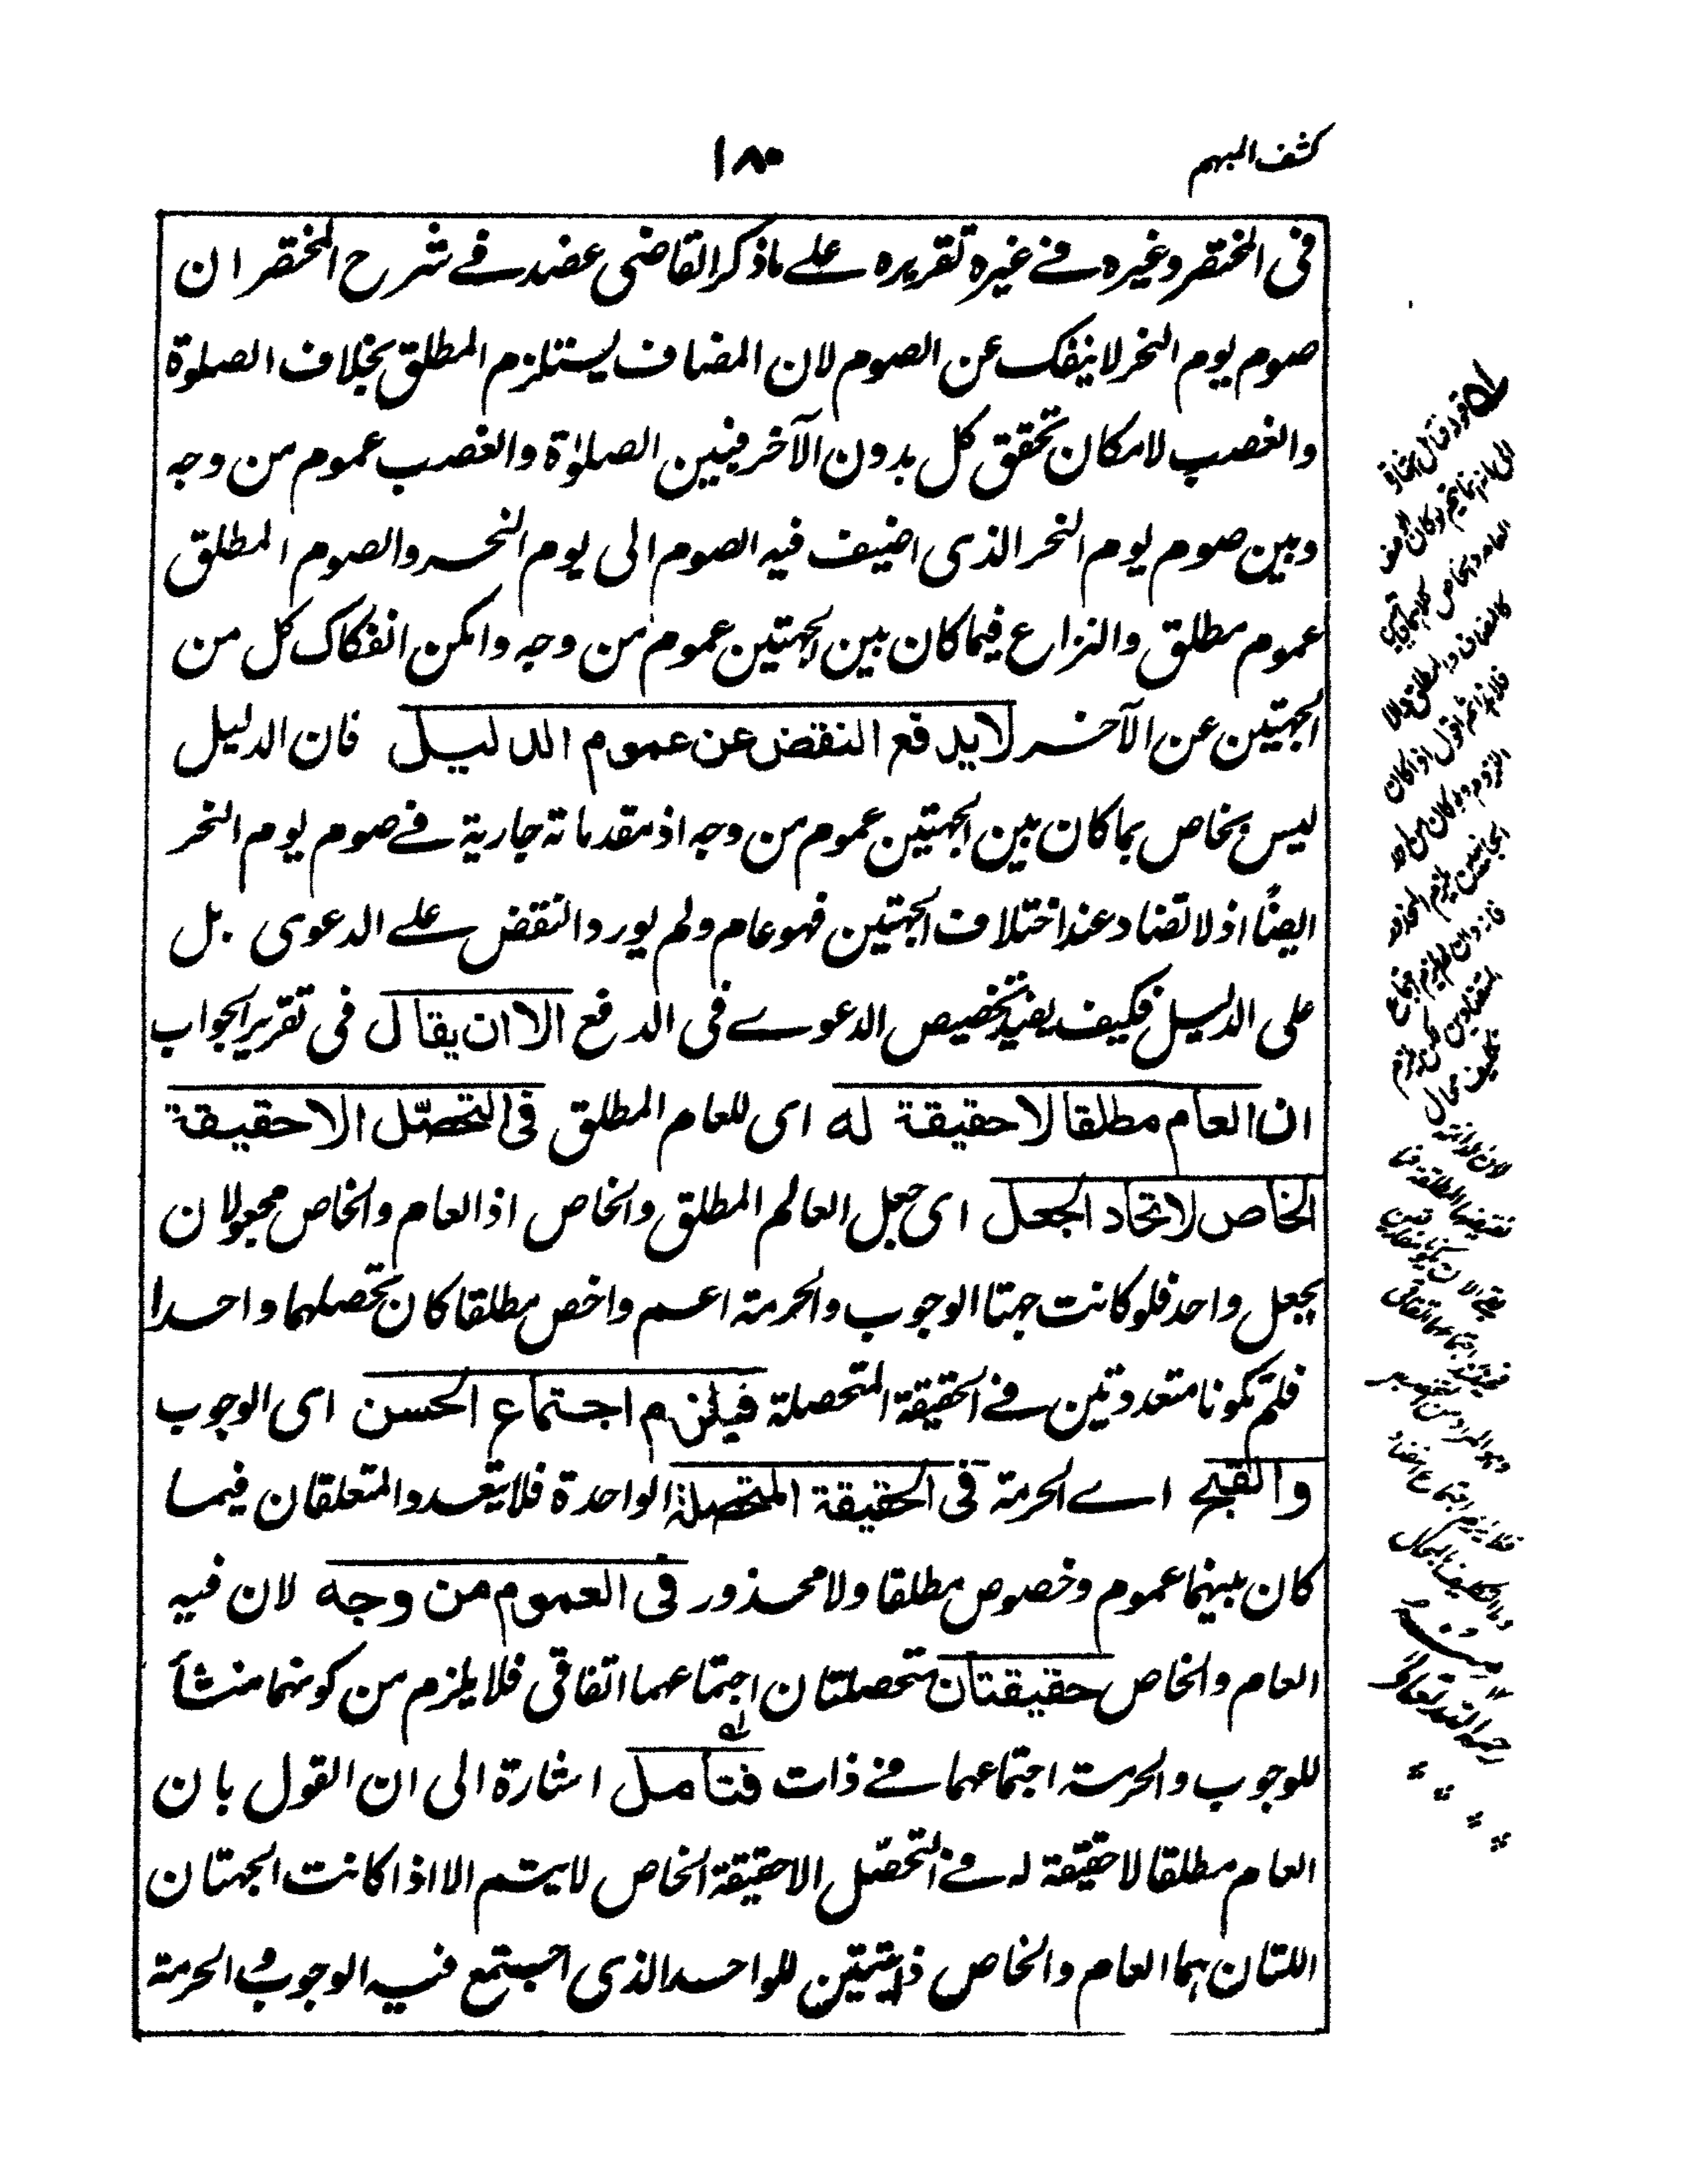 كشف المبهم
١٨٠
فى المختصر وغيره فے غيره تقريره علے ماذكر القاضى عضد فے شرح المختصر ان
صوم يوم النحر لا ينفك عن الصوم لان المضاف يستلزم المطلق بخلاف الصلوة
والغصب لامكان تحقق كل بدون الآخر فبين الصلوٰة والغصب عموم من وجه
وبين صوم يوم النحر الذى اضيف فيه الصوم الى يوم النحر والصوم المطلق
عموم مطلق والنزاع فيما كان بين الجهتين عموم من وجه وامكن انفكاك كل من
الجهتين عن الآخر لا يدفع النقض عن عموم الدليل فان الدليل
ليس بخاص بما كان بين الجهتين عموم من وجه اذ مقدماته جارية فے صوم يوم النحر
ايضًا اذ لا تضاد عند اختلاف الجهتين فهو عام ولم يورد النقض علے الدعوى بل
على الدليل فكيف يفيد تخصيص الدعوے فى الدفع الا ان يقال فى تقرير الجواب
ان العام مطلقا لا حقيقة له اى للعام المطلق فى التحصّل الا حقيقة
الخاص لاتحاد الجعل اى جعل العالم المطلق والخاص اذ العام والخاص مجعولان
بجعل واحد فلو كانت جهتا الوجوب والحرمة اعم واخص مطلقا كان تحصلهما واحدا
فلم تكونا متعددتين فے الحقيقة المتحصلة فيلزم اجتماع الحسن اى الوجوب
والقبح اے الحرمة فى الحقيقة المتحصلة الواحدة فلا يتعدد المتعلقان فيما
كان بينهما عموم وخصوص مطلقا ولا محذور فى العموم من وجه لان فيه
العام والخاص حقيقتان متحصلتان اجتماعهما اتفاقى فلا يلزم من كونهما منشأ
للوجوب والحرمة اجتماعهما فے ذات فتأمل اشارة الى ان القول بان
العام مطلقا لا حقيقة له فے التحصّل الا حقيقة الخاص لا يتم الا اذا كانت الجهتان
اللتان هما العام والخاص ذاتيتين للواحد الذى اجتمع فيه الوجوب والحرمة